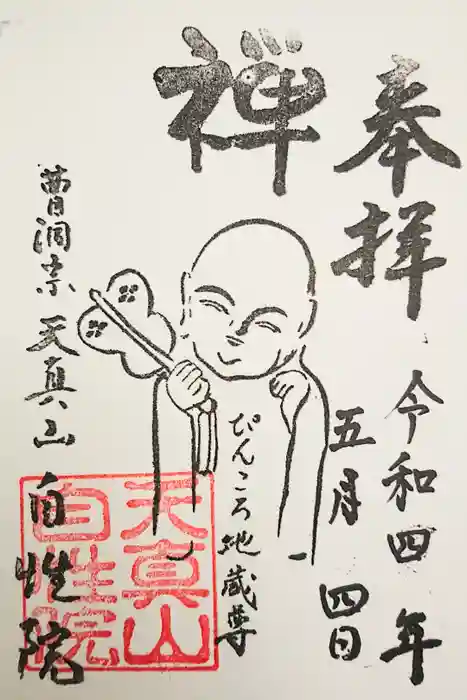 奉拝
令和四年
五月四日
禅
ぴんころ地蔵尊
曹洞宗 天真山 自性院
天真山
自性院